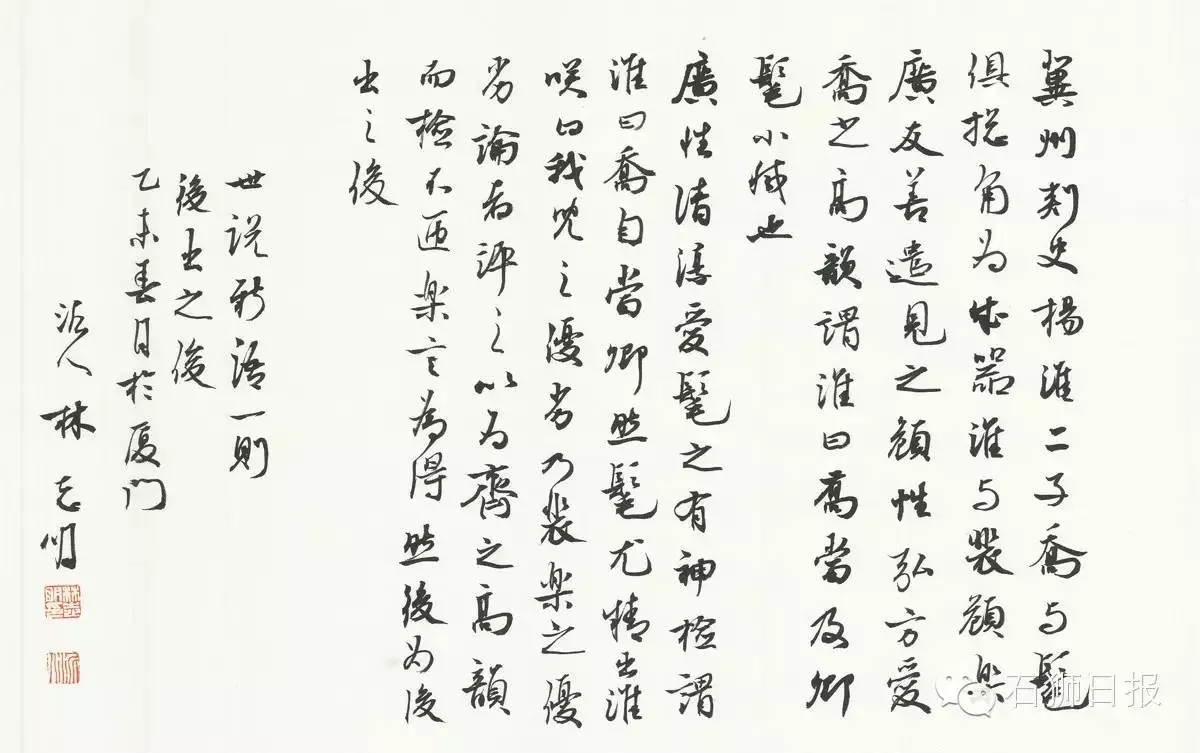 冀州刾史楊淮二子喬与髦
俱揔角为成器淮与裴頠楽
廣友善遣見之頠性弘方愛
喬之高韻謂淮曰喬當及卿
髦小減也
廣性清淳愛髦之有神檢謂
淮曰喬自當卿然髦尤精出淮
咲曰我児之優劣乃裴楽之優
劣論者評之以为齊之高韻
而檢不匝楽言為得然後为後
出之俊
世説新語一則
後出之俊
乙未春日於厦门
人林志明
石狮日报